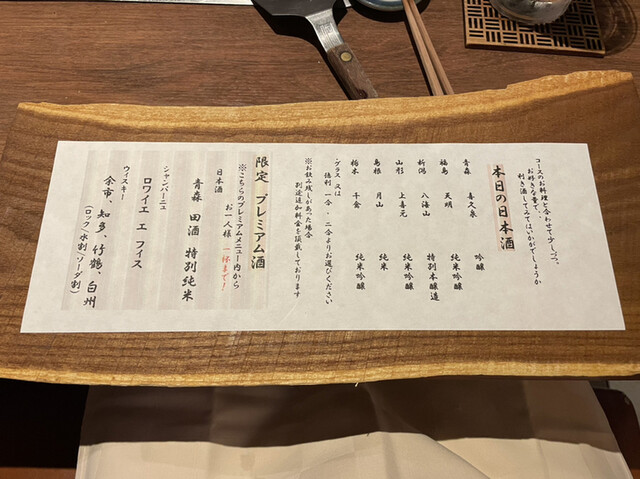 コースのお料理と合わせて少しづつ、
お好きな量で、、
利き酒してみてはいかがでしょうか
本日の日本酒
青森 喜久泉 吟醸
福島 天明 純米吟醸
新潟 八海山 特別本醸造
山形 上喜元 純米吟醸
島根 月山 純米
栃木 千金 純米吟醸
・グラス 又は
徳利 一合 ・ 二合よりお選びください
※お飲み残しがあった場合
別途追加料金を頂戴しております
限定 プレミアム酒
※こちらのプレミアムメニュー内から
お一人様 一杯まで!
日本酒
青森 田酒 特別純米
シャンパーニュ
ロワイエ エ フイス
ウィスキー
余市、知多、竹鶴、白州
(ロック)(水割)(ソーダ割)